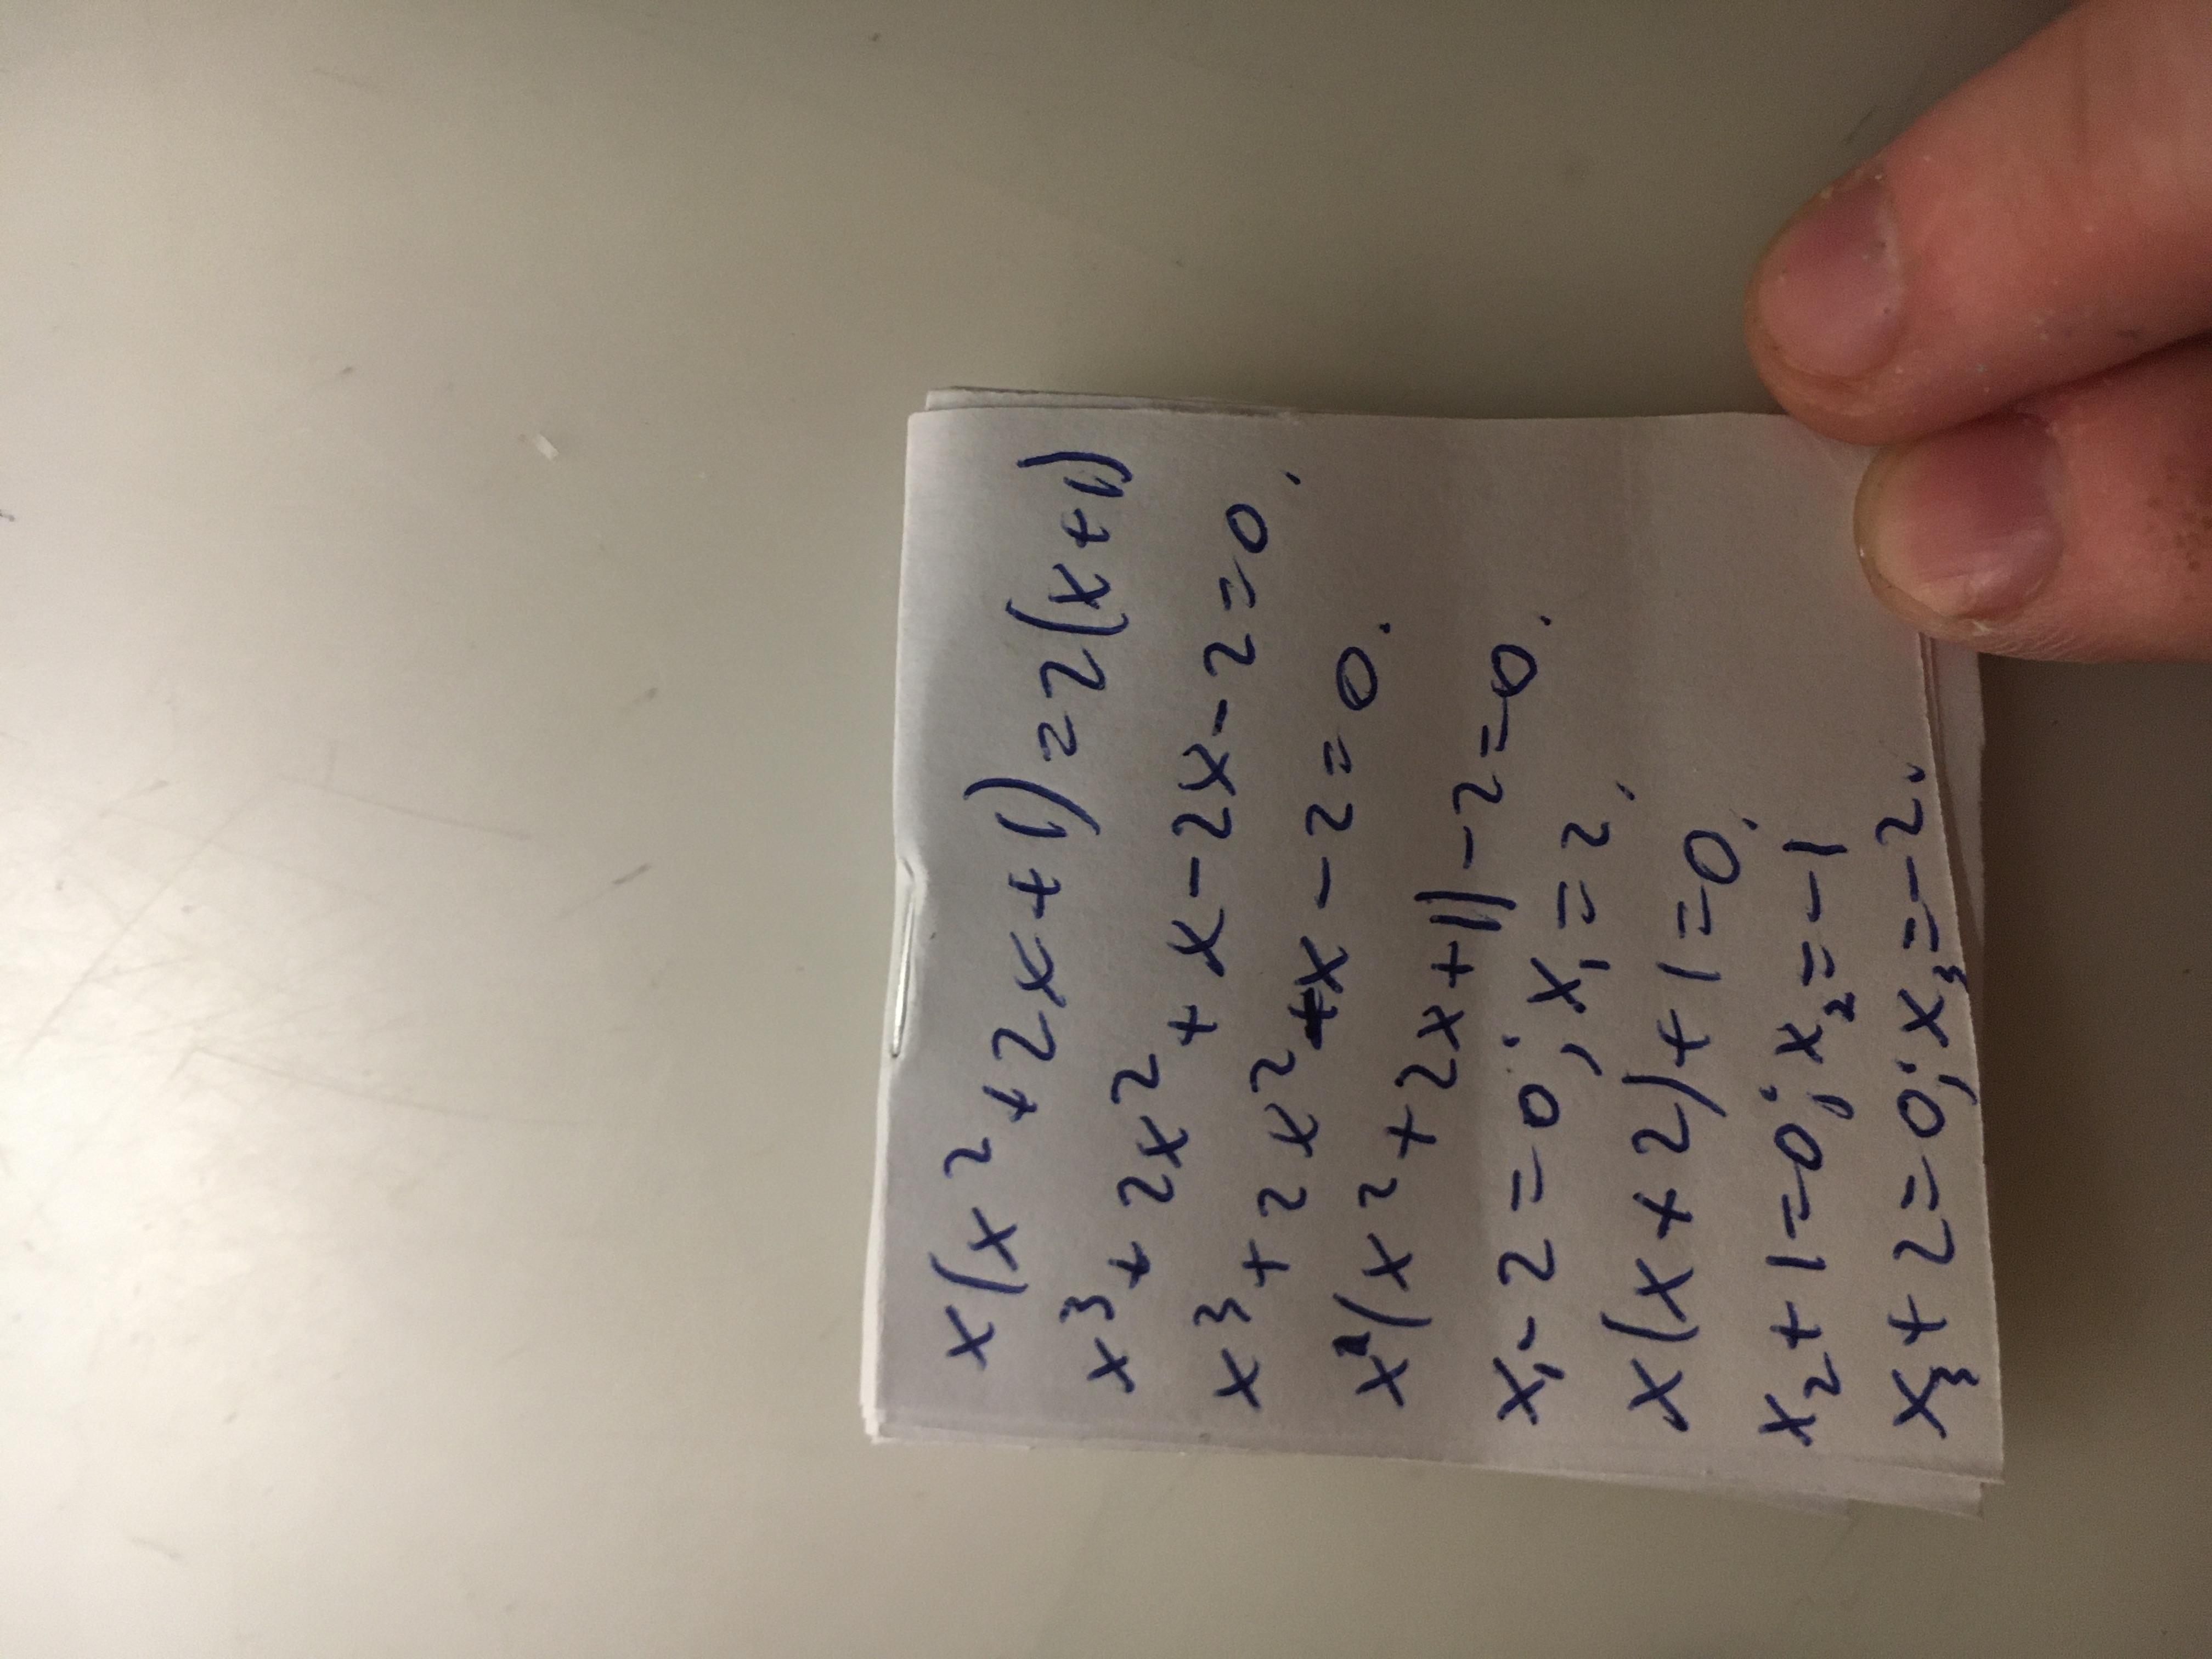 x(x²+2x+1)=2(x+1)
x³+2x²+x-2x-2=0.
x³+2x²+x-2=0.
x(x²+2x+1)-2=0.
x₁-2=0; x₁=2.
x(x+2)+1=0.
x₂+1=0; x₂=-1
x₃+2=0; x₃=-2.